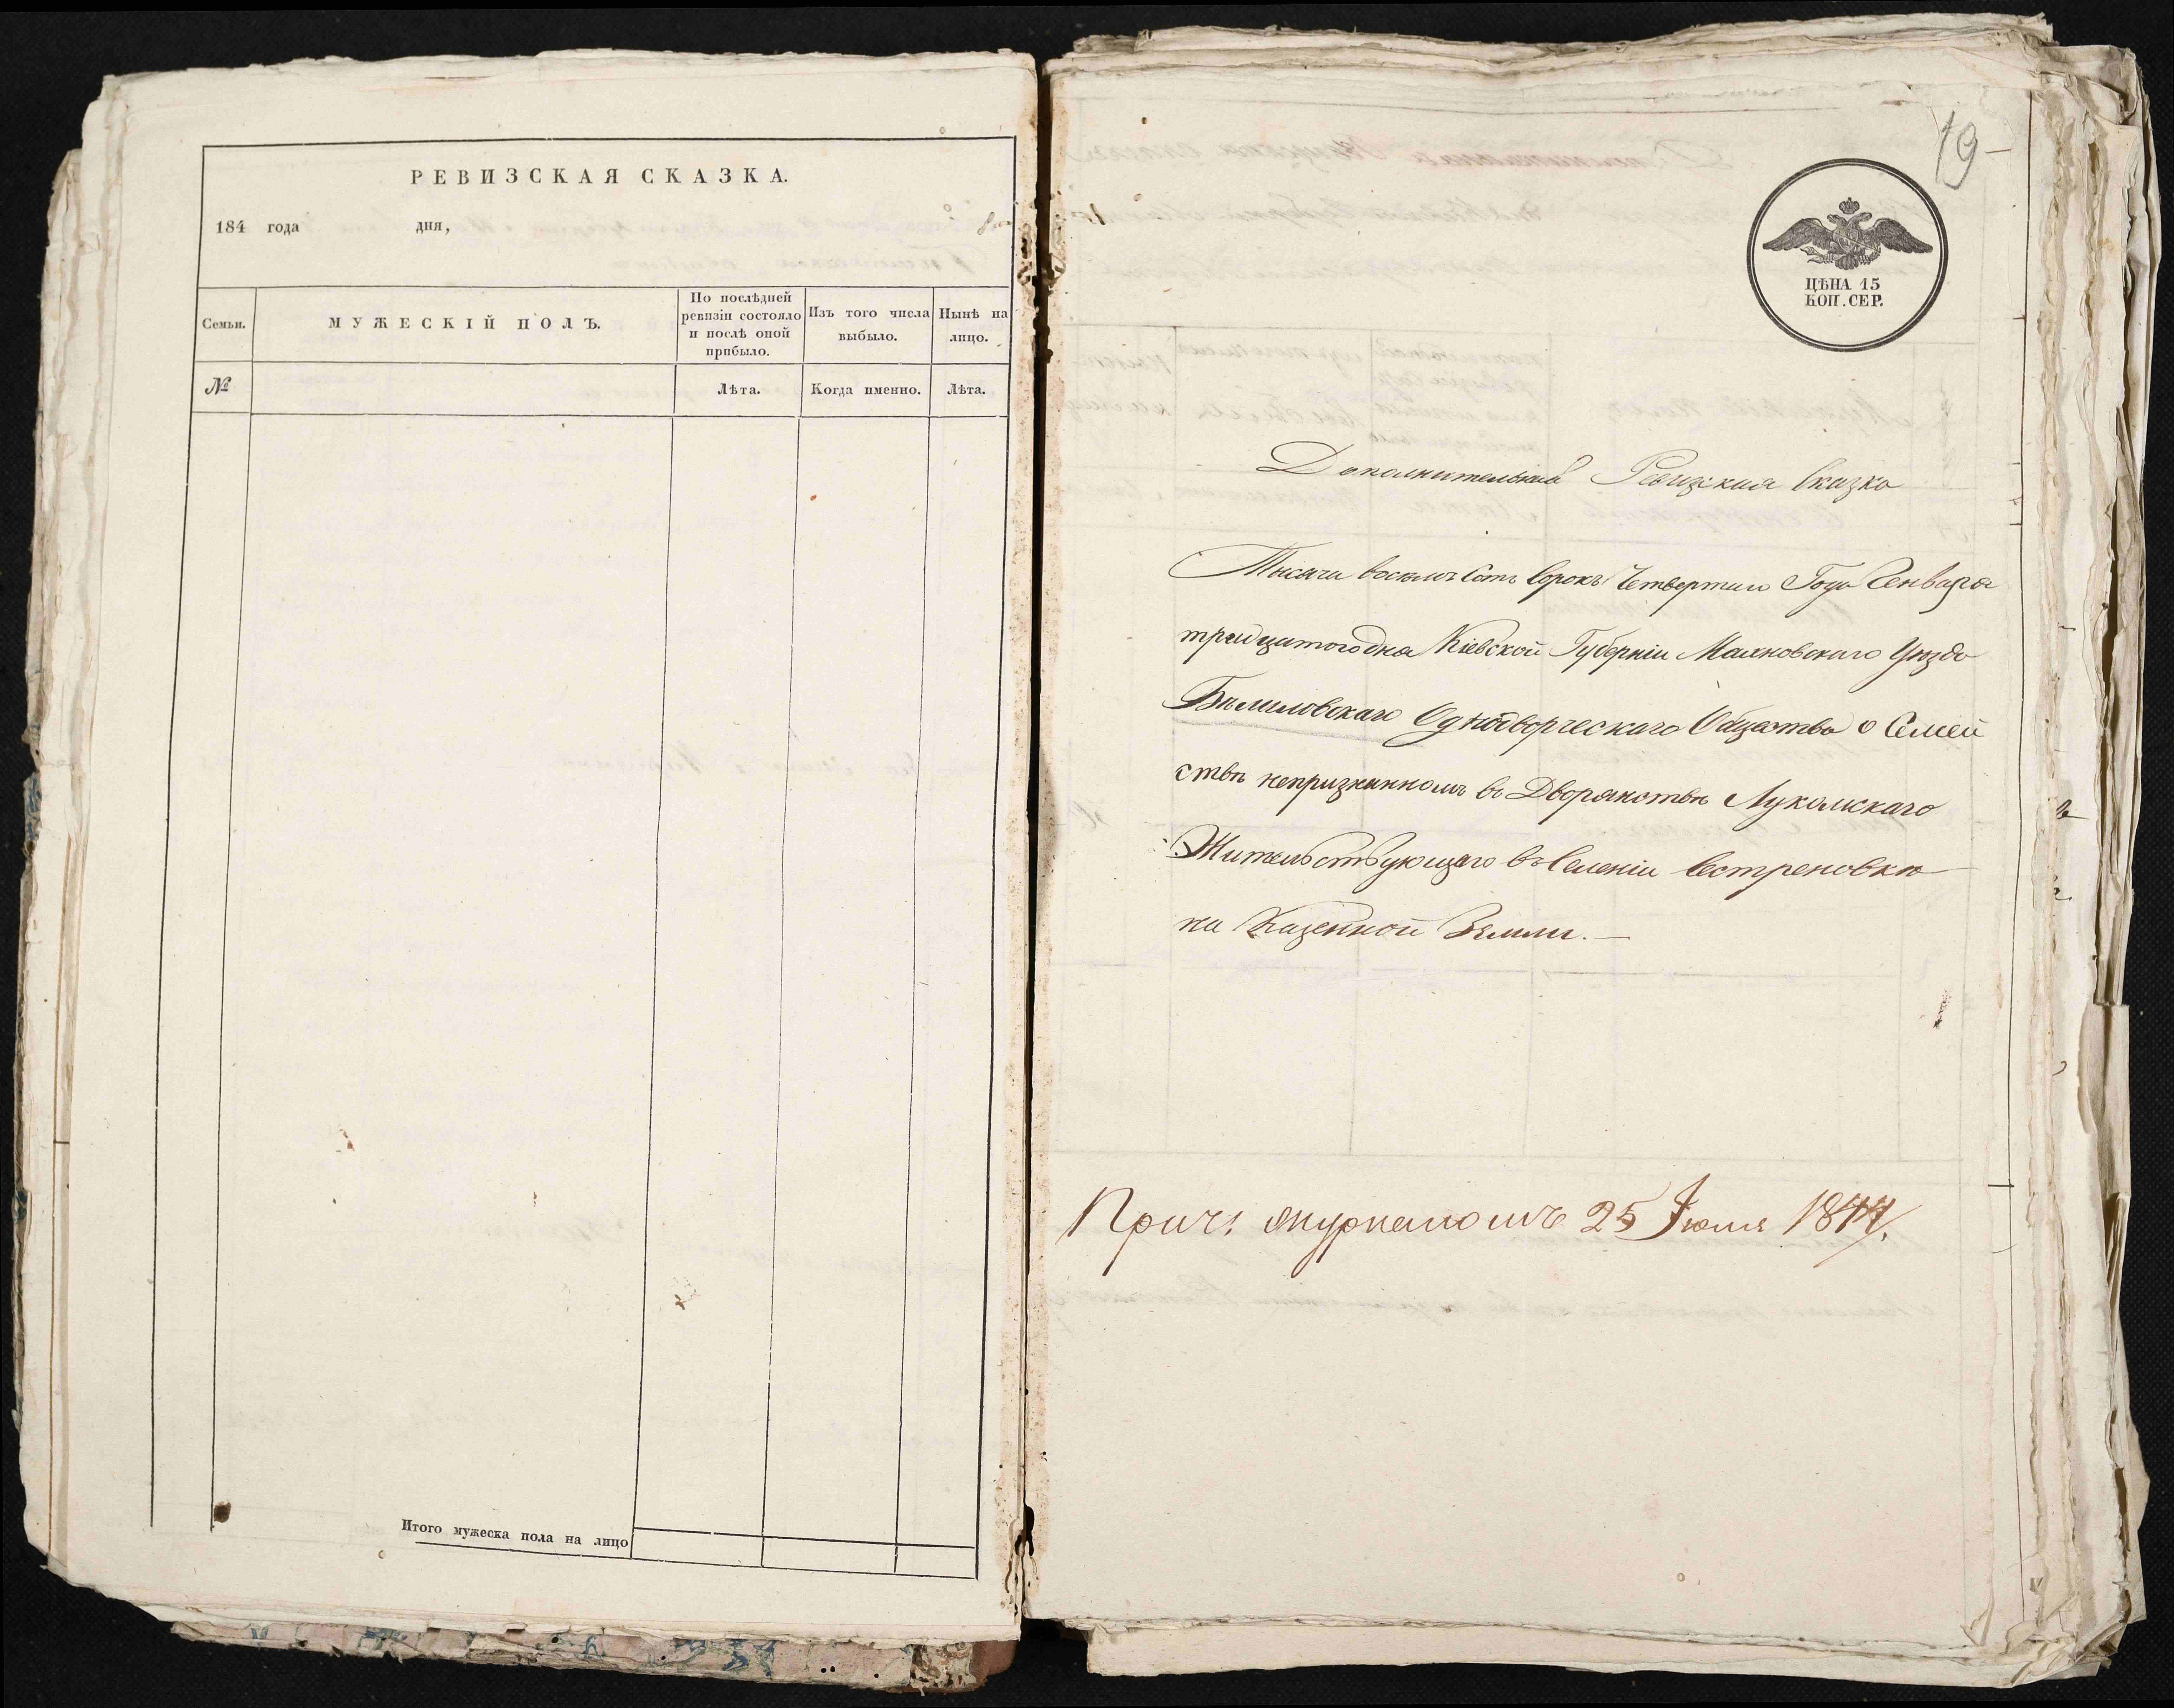 РЕВИЗСКАЯ СКАЗКА.
184 года дня,
Семьи. МУЖЕСКІЙ ПОЛЪ. По послѣдней ревизіи состояло и послѣ оной прибыло. Изъ того числа выбыло. Нынѣ на лицо.
№ Лѣта. Когда именно. Лѣта.
Итого мужеска пола на лицо
19
ЦѢНА 15
КОП. СЕР.
Дополнительная Ревизкая Сказка
Тысячи восемъ Сотъ Сорокъ Четвертаго Года Генваря
тридцатого дня Кіевской Губерніи Махновскаго Уезда
Бѣлиловскаго Однодворческаго Общества о Семей
ствѣ непризнанномъ въ Дворянствѣ Лукомскаго
Жительствующаго въ Селеніи Сестреновкѣ
на Казенной Земли. —
Прич: журналомъ 25 Іюля 1844.